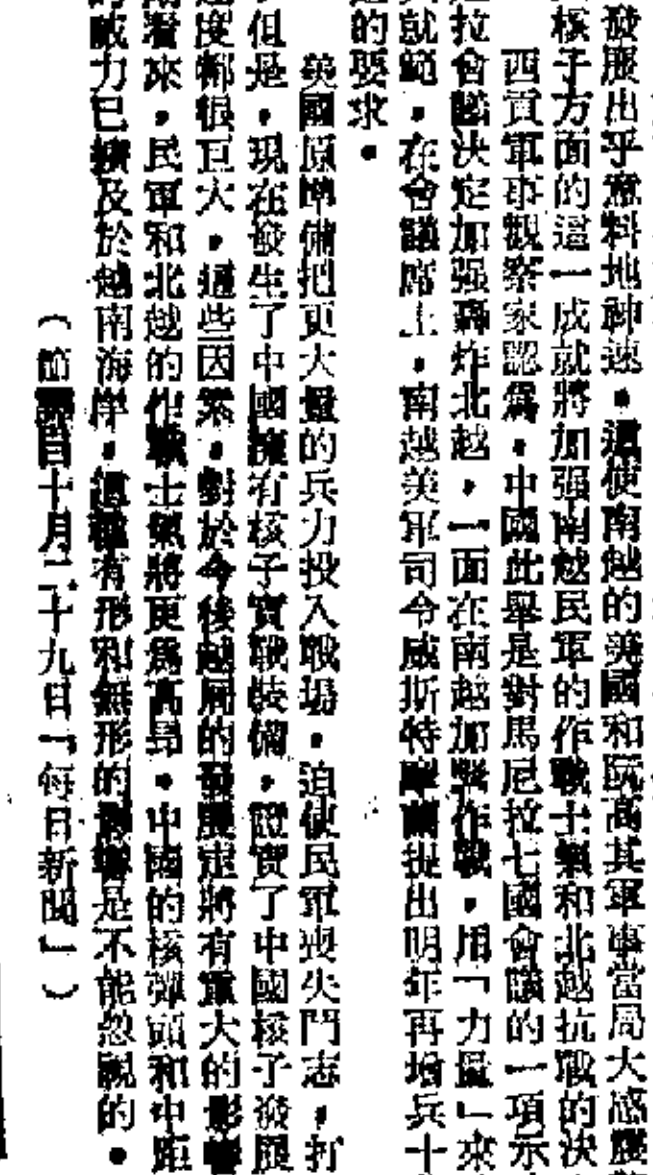 發展出乎意料地神速。這使南越的美國和阮高其軍事當局大感震
核子方面的這一成就將加强南越民軍的作戰士氣和北越抗戰的決
西貢軍事觀察家認爲，中國此舉是對馬尼拉七國會議的一項示
拉會議決定加强轟炸北越，一面在南越加緊作戰，用「力量」來
就範，在會議席上，南越美軍司令威斯特摩蘭提出明年再增兵十
的要求。
美國原準備把更大量的兵力投入戰場，迫使民軍喪失鬥志，打
但是，現在發生了中國擁有核子實戰裝備，證實了中國核子發展
度都很巨大，這些因素，對於今後越局的發展定將有重大的影響
看來，民軍和北越的作戰士氣將更爲高昂。中國的核彈頭和中距
威力已擴及於越南海岸，這種有形和無形的影響是不能忽視的。
（節譯自十月二十九日「每日新聞」）